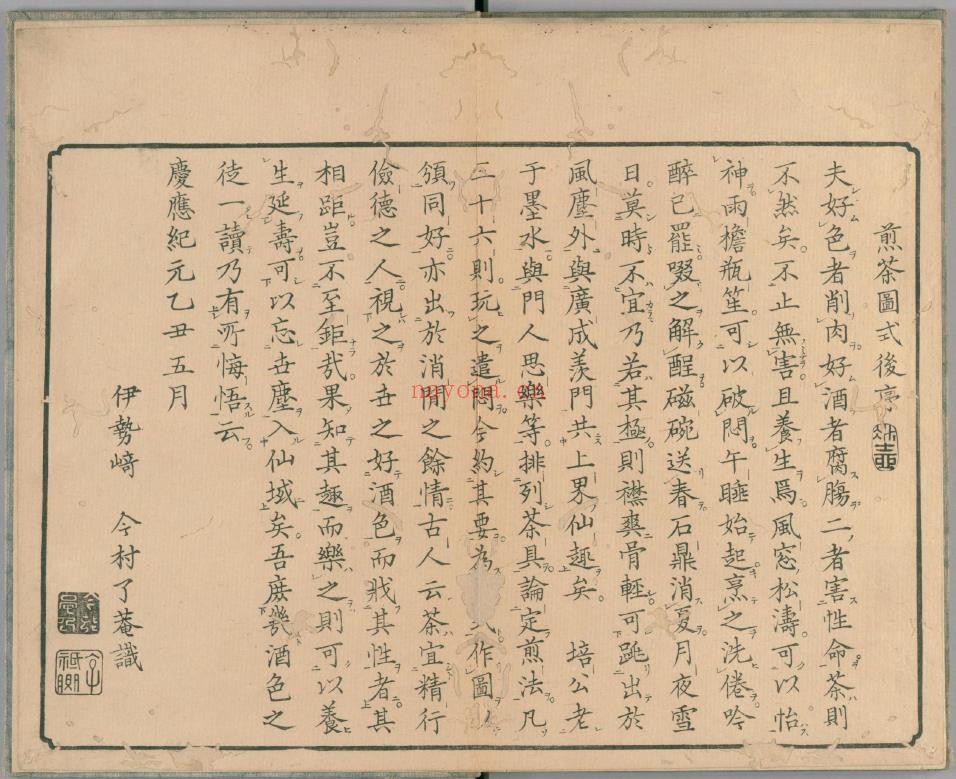 煎茶圖式後序
夫好色者削肉好酒者腐腸二者害性命茶則
不然矣不止無害且養生焉風窓松濤可以怡
神雨檐瓶笙可以破悶午睡始起烹之洗倦吟
醉已罷啜之解酲磁碗送春石鼎消夏月夜雪
日莫時不宜乃若其極則襟爽骨輕可跳出於
風塵外與廣成羨門共上界仙趣矣 培公老
于墨水與門人思樂等排列茶具論定煎法凡
三十六則玩之遣悶今約其要為 作圖以
頒同好亦出於消閒之餘情古人云茶宜精行
儉德之人視之於世之好酒色而戕其性者其
相距豈不至鉅哉果知其趣而樂之則可以養
生延壽可以忘世塵入仙域矣吾庶幾酒色之
徒一讀乃有所悔悟云
慶應紀元乙丑五月
伊勢﨑 今村了菴識
nuvona.cn